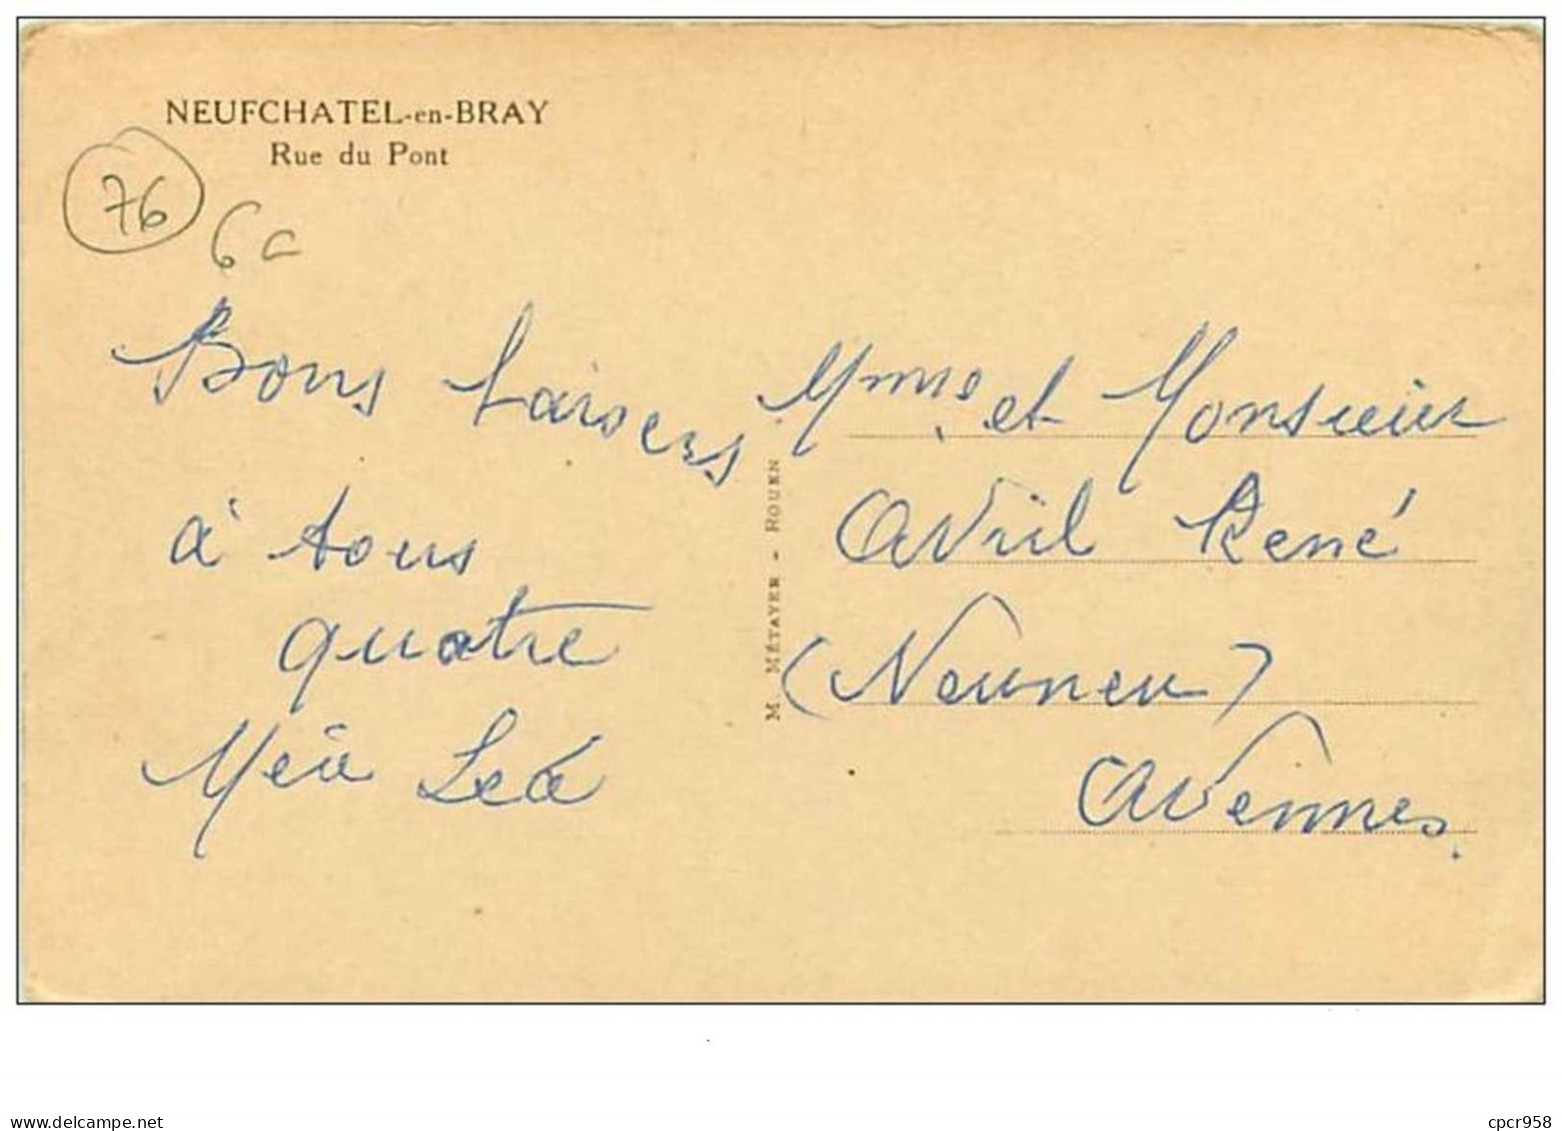 NEUFCHATEL-en-BRAY
Rue du Pont
76
6a
Bons baisers
à tous
quatre
Léa
M. MÉTAYER - ROUEN
Mme et Monsieur
Avril René
(Neuneu)
Avennes.
cpcr958